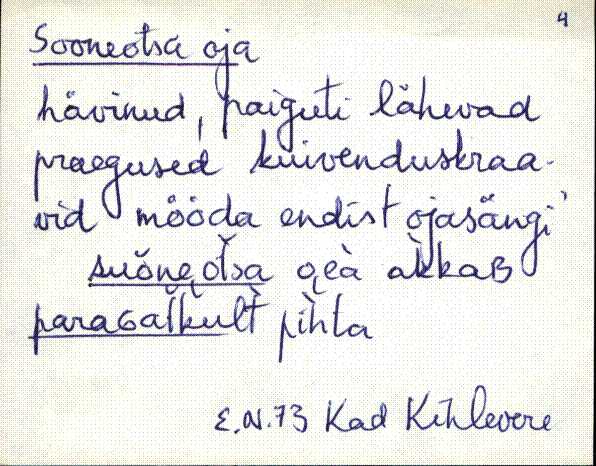 4
Sooneotsa oja
hävinud, paiguti lähevad
praegused kuivenduskraa-
vid mööda endist ojasängi
suõne̬o̬tsa o̬e̬à àkkaB
paraɢaìkult pìhta
E.N.73 Kad Kihlevere